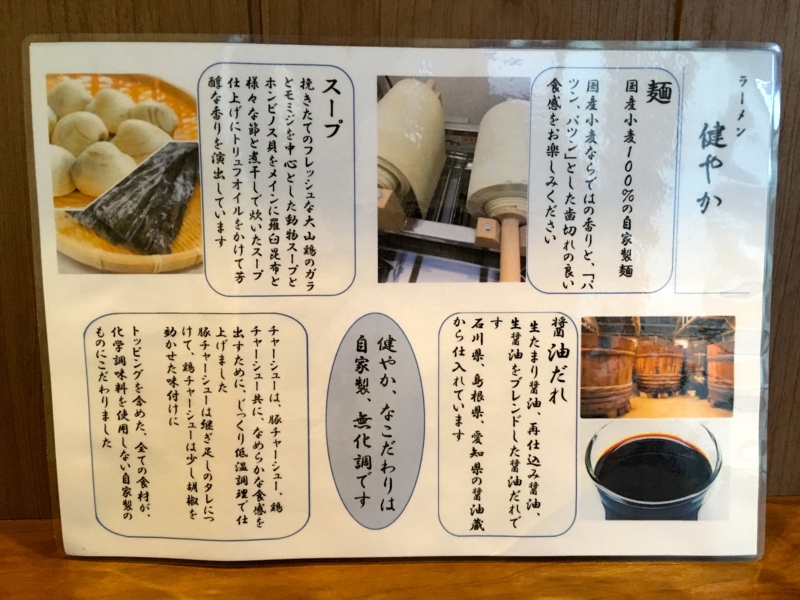 ラーメン
健やか
麺
国産小麦100%の自家製麺
国産小麦ならではの香りと、「パ
ツン、パツン」とした歯切れの良い
食感をお楽しみください
スープ
挽きたてのフレッシュな大山鶏のガラ
とモミジを中心とした動物スープと
ホンビノス貝をメインに羅臼昆布と
様々な節と煮干しで炊いたスープ
仕上げにトリュフオイルをかけて芳
醇な香りを演出しています
醤油だれ
生たまり醤油、再仕込み醤油、
生醤油をブレンドした醤油だれで
す
石川県、島根県、愛知県の醤油蔵
から仕入れています
健やか、なこだわりは
自家製、無化調です
チャーシューは、豚チャーシュー、鶏
チャーシュー共に、なめらかな食感を
出すために、じっくり低温調理で仕
上げました
豚チャーシューは継ぎ足しのタレにつ
けて、鶏チャーシューは少し胡椒を
効かせた味付けに
トッピングを含めた、全ての食材が、
化学調味料を使用しない自家製の
ものにこだわりました